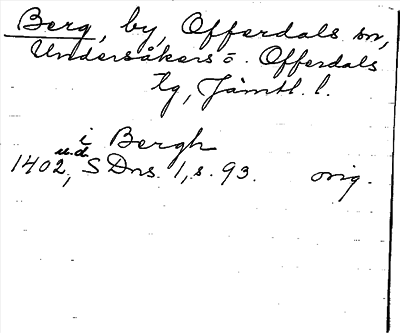 Berg, by, Offerdals sn,
Undersåkers o. Offerdals
tg, Jämtl. l.
i Bergh
u.d.
1402, S Dns. 1, s. 93. orig.